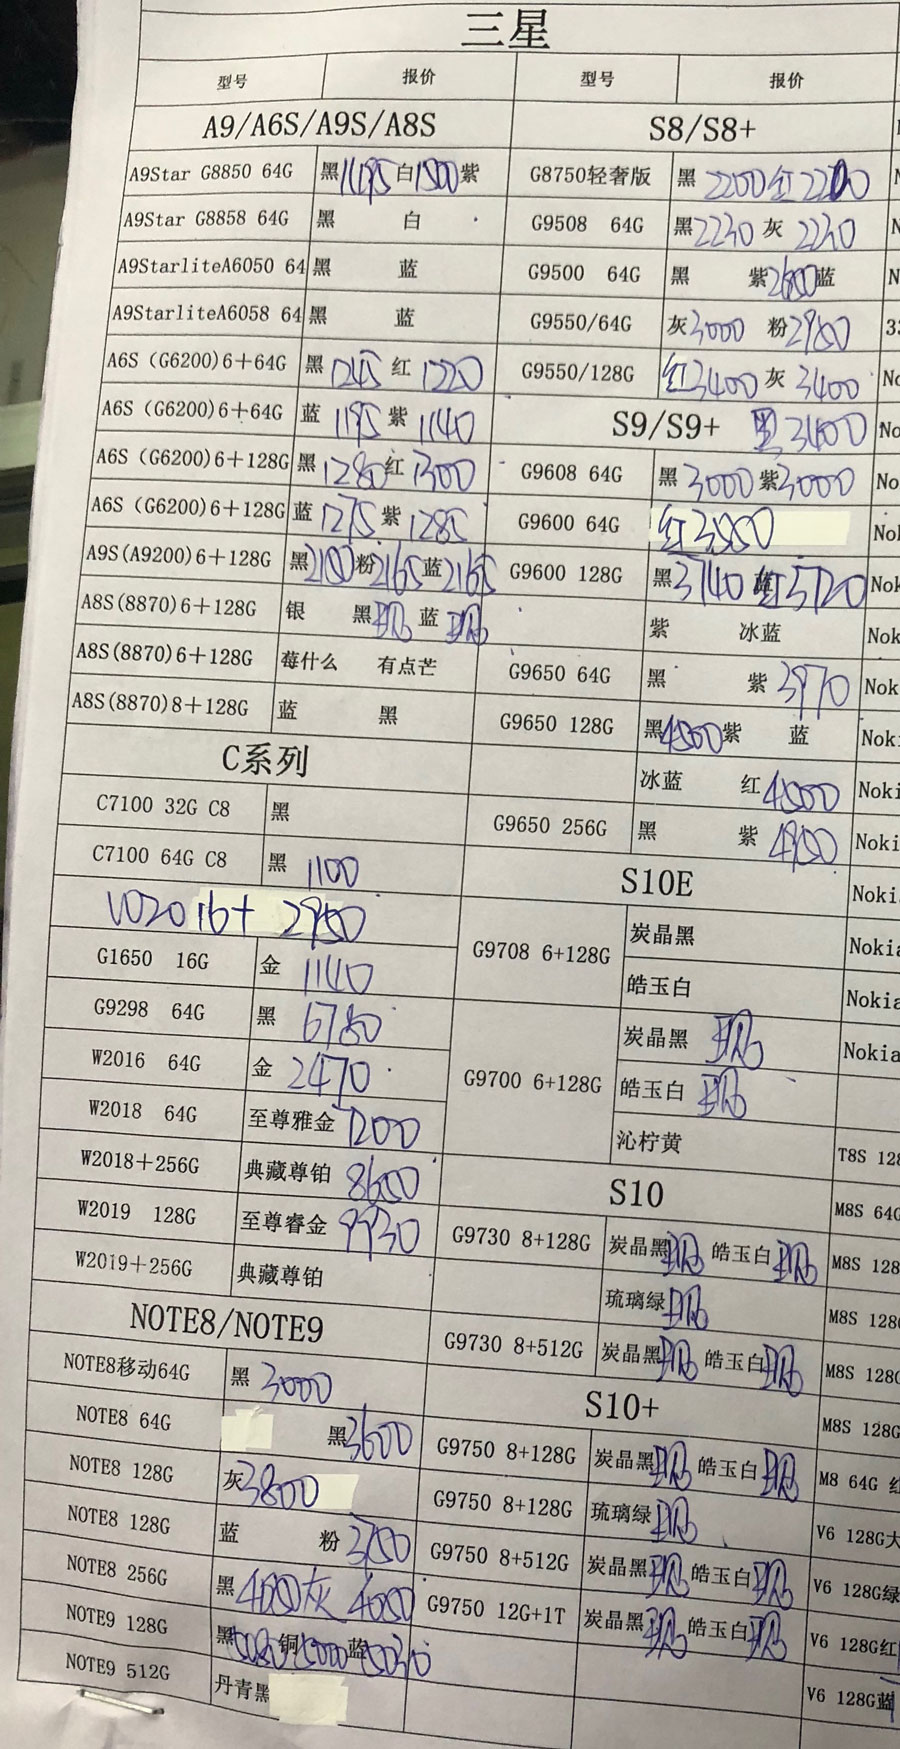 三星
型号 报价 型号 报价
A9/A6S/A9S/A8S S8/S8+
A9Star G8850 64G 黑1195 白1300 紫 G8750轻奢版 黑 2200 红 2200
A9Star G8858 64G 黑 白 G9508 64G 黑2230 灰 2230
A9StarliteA6050 64 黑 蓝 G9500 64G 黑 紫2600 蓝
A9StarliteA6058 64 黑 蓝 G9550/64G 灰3000 粉2950
A6S (G6200)6+64G 黑 1245 红 1220 G9550/128G 红3400 灰 3400
A6S (G6200)6+64G 蓝 1195 紫 1140 S9/S9+ 黑3400
A6S (G6200)6+128G 黑 1280 红 1300 G9608 64G 黑 3000 紫3000
A6S (G6200)6+128G 蓝 1275 紫 1285 G9600 64G 红3550
A9S(A9200)6+128G 黑2100 粉2165 蓝2165 G9600 128G 黑3740 红3720
A8S(8870)6+128G 银 黑现 蓝 现 紫 冰蓝
A8S(8870)6+128G 莓什么 有点芒 G9650 64G 黑 紫 3970
A8S(8870)8+128G 蓝 黑 G9650 128G 黑4500 紫 蓝
C系列 冰蓝 红4500
C7100 32G C8 黑 G9650 256G 黑 紫 4950
C7100 64G C8 黑 1100 S10E
W2016+ 2950 G9708 6+128G 炭晶黑
皓玉白
G1650 16G 金 1140
G9298 64G 黑 6780 G9700 6+128G 炭晶黑 现
W2016 64G 金 2470 皓玉白 现
W2018 64G 至尊雅金 7200 沁柠黄
W2018+256G 典藏尊铂 8600 S10
W2019 128G 至尊睿金 9930 G9730 8+128G 炭晶黑现 皓玉白现
W2019+256G 典藏尊铂 琉璃绿现
NOTE8/NOTE9 G9730 8+512G 炭晶黑现 皓玉白现
NOTE8移动64G 黑 3000 S10+
NOTE8 64G 黑3600 G9750 8+128G 炭晶黑现 皓玉白现
NOTE8 128G 灰3800 G9750 8+128G 琉璃绿现
NOTE8 128G 蓝 粉 3750 G9750 8+512G 炭晶黑现 皓玉白现
NOTE8 256G 黑4050 灰 4050 G9750 12G+1T 炭晶黑现 皓玉白现
NOTE9 128G 黑5080 铜5000 蓝5030
NOTE9 512G 丹青黑
Nokia
Nokia
Nokia
T8S 128
M8S 64G
M8S 128
M8S 128G
M8S 128G
M8S 128G
M8 64G 红
V6 128G大
V6 128G绿
V6 128G红
V6 128G蓝